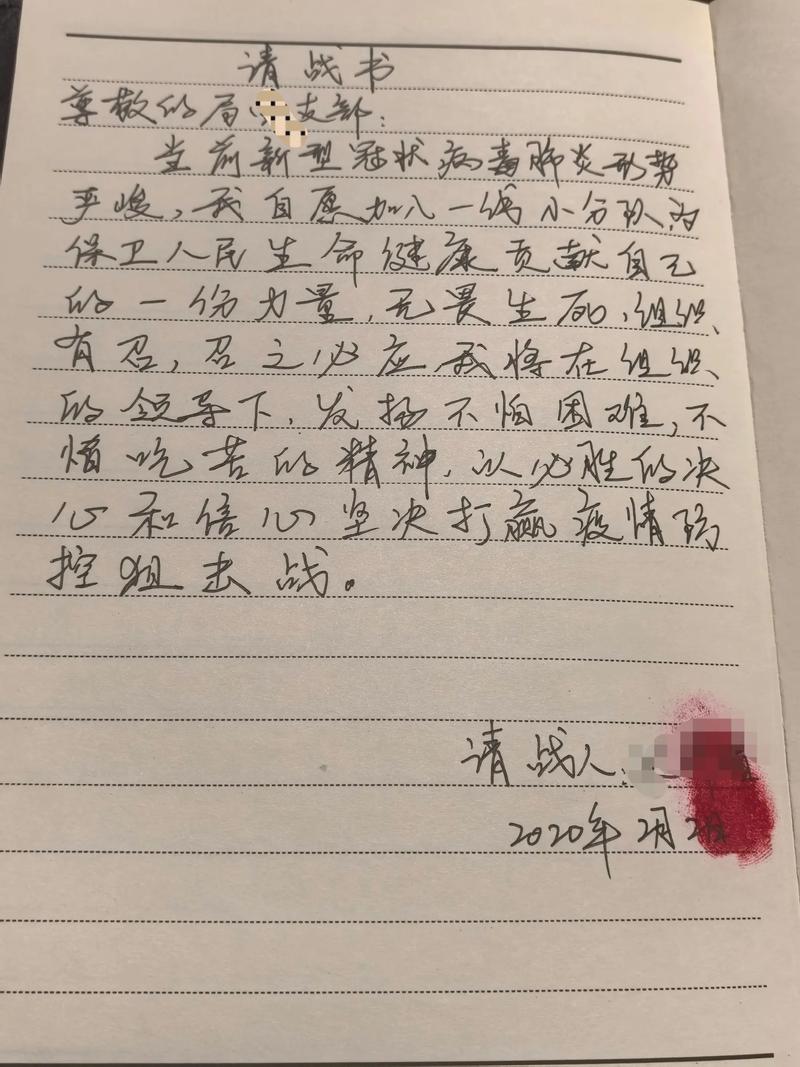 请战书
尊敬的局支部:
当前新型冠状病毒肺炎形势
严峻,我自愿加入一线小分队,为
保卫人民生命健康贡献自己
的一份力量,无畏生死,组织
有召,召之必应,我将在组织
的领导下,发扬不怕困难,不
惜吃苦的精神,以必胜的决
心和信心坚决打赢疫情防
控狙击战。
请战人:
2020年2月2日